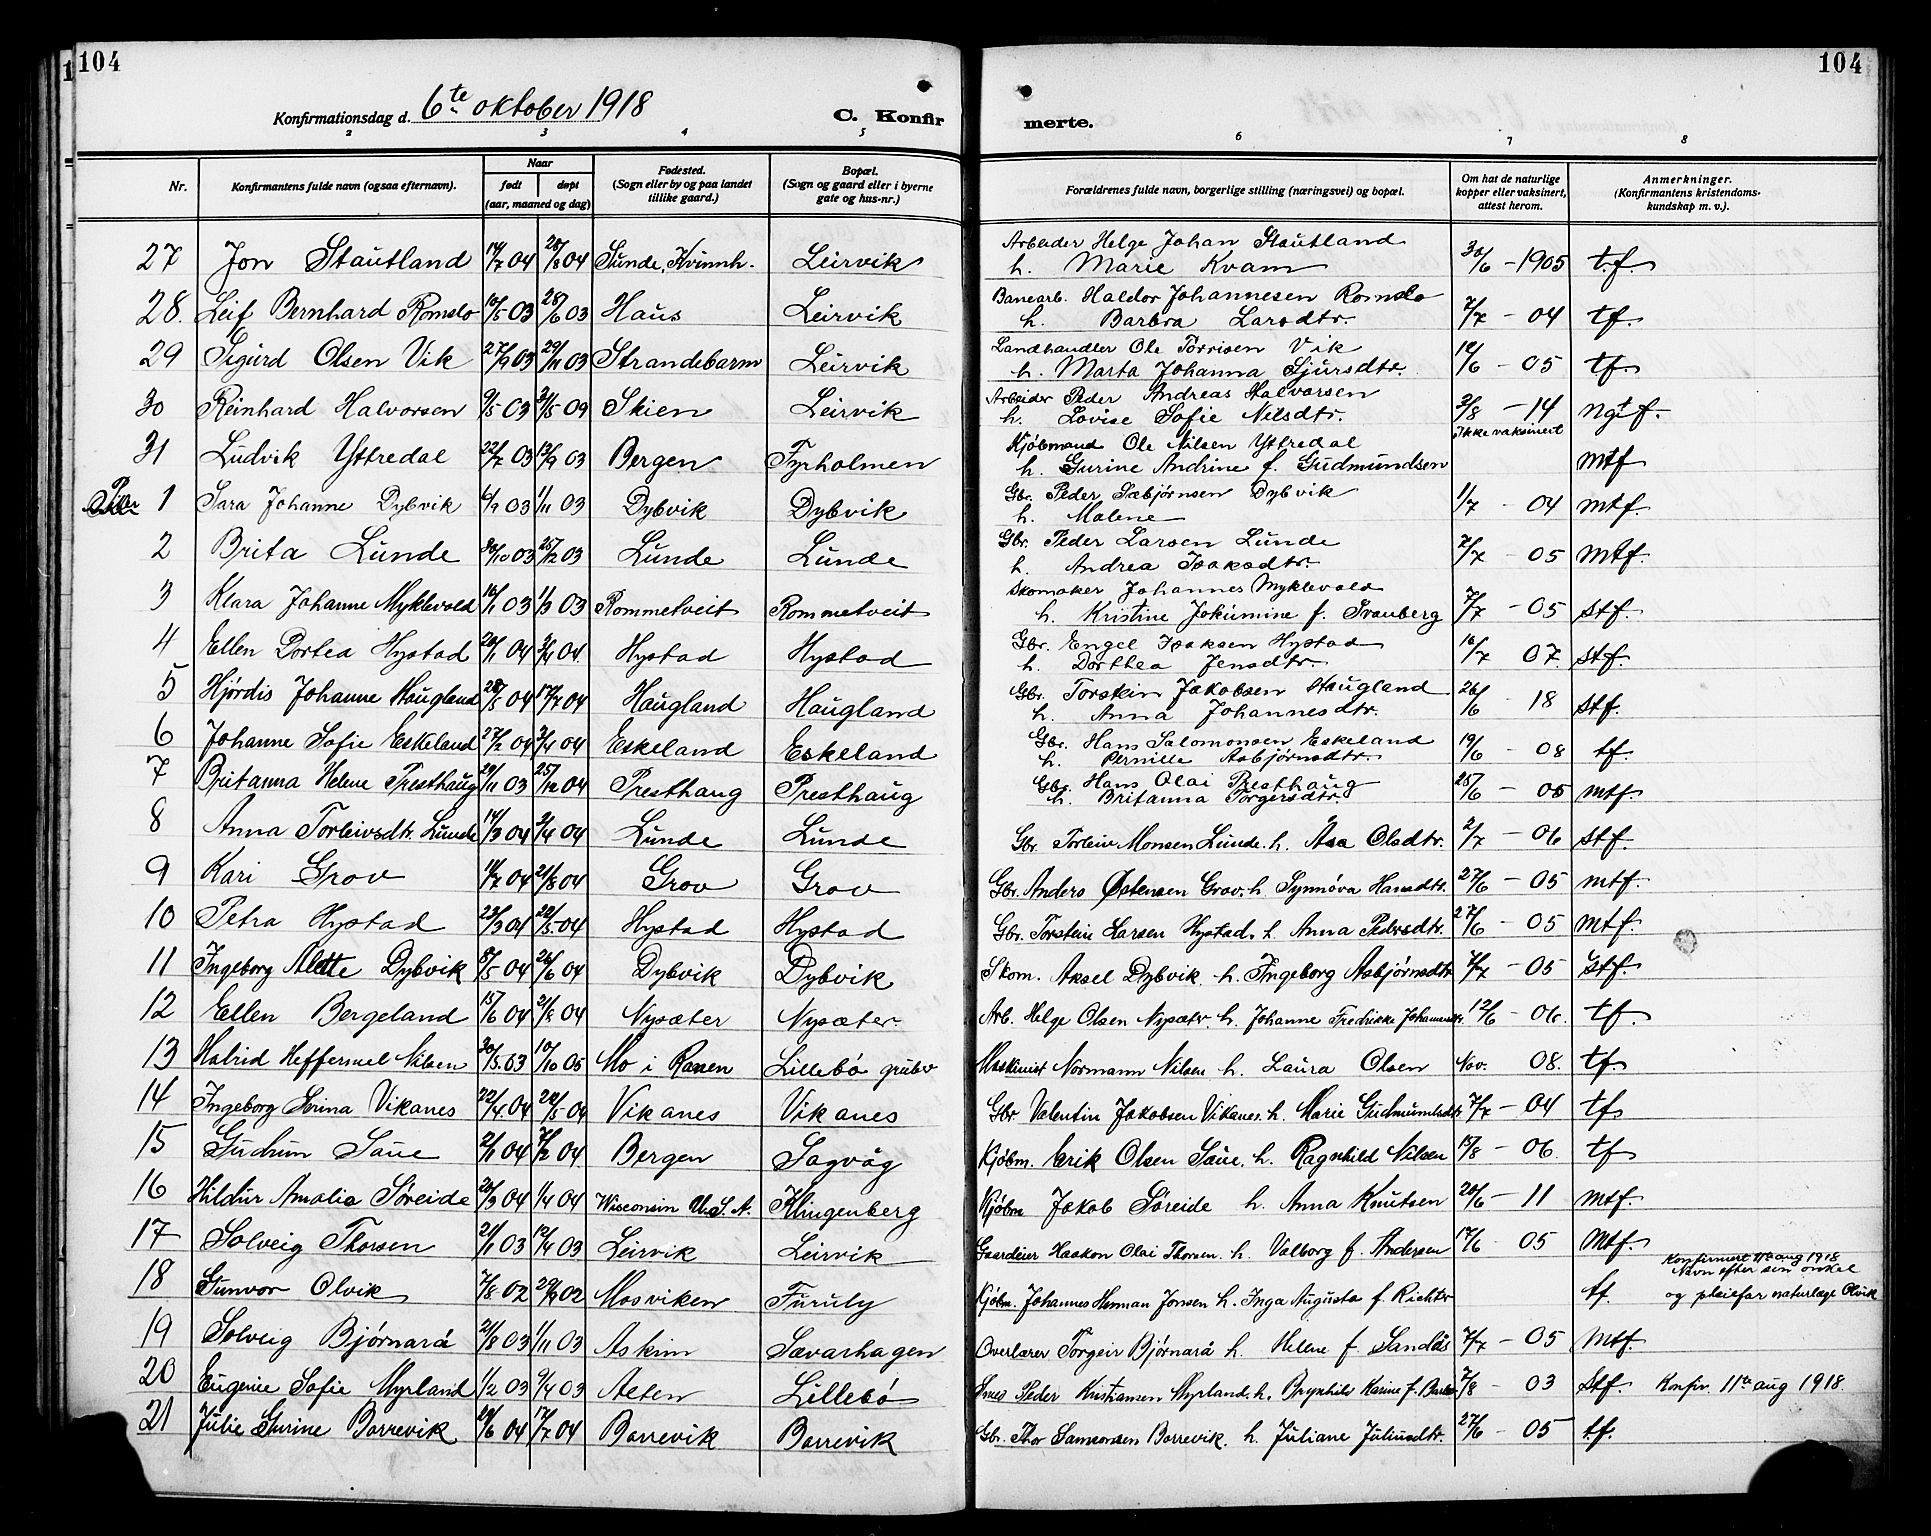 104
104
Konfirmationsdag d. 6te oktober 1918
C. Konfirmerte.
2 3 4 5 6 7 8
Nr. Konfirmantens fulde navn (ogsaa efternavn). Naar født døpt (aar, maaned og dag) Fødested. (Sogn eller by og paa landet tillike gaard.) Bopæl. (Sogn og gaard eller i byerne gate og hus-nr.) Forældrenes fulde navn, borgerlige stilling (næringsvei) og bopæl. Om hat de naturlige kopper eller vaksinert, attest herom. Anmerkninger. (Konfirmantens kristendoms-kundskap m. v.).
27 Jon Stautland 14/7 04 28/8 04 Sunde, Kvinnh. Leirvik Arbeider Helge Johan Stautland h. Marie Kvam 30/6 - 1905 t.f.
28. Leif Bernhard Romslo 10/5 03 28/6 03 Haus Leirvik Banearb. Haldor Johannesen Romslo h. Barbra Larsdtr. 7/7 - 04 tf.
29 Sigurd Olsen Vik 27/9 03 29/11 03 Strandebarm Leirvik Landhandler Ole Torrisen Vik h. Marta Johanna Sjursdtr. 12/6 - 05 tf.
30 Reinhard Halvorsen 9/5 03 31/5 09 Skien Leirvik Arbeider Peder Andreas Halvorsen h. Lovise Sofie Nilsdtr. 3/8 - 14 Ngtf.
31 Ludvik Yttredal 22/7 03 13/9 03 Bergen Fyrholmen Kjøbmand Ole Nilsen Yttredal h. Gurine Andrine f. Gudmundsen Ikke vaksinert mtf
1 Sara Johanne Dybvik 6/9 03 1/11 03 Dybvik Dybvik Gbr. Peder Sæbjørnsen Dybvik h. Malene 1/7 - 04 mtf.
2 Brita Lunde 30/10 03 25/12 03 Lunde Lunde Gbr. Peder Larsen Lunde h. Andrea Isaksdtr. 2/7 - 05 mtf.
3 Klara Johanne Myklevold 16/1 03 1/3 03 Rommetveit Rommetveit Skomaker Johannes Myklevold h. Kristine Jokumine f. Svanberg 7/7 - 05 stf.
4 Ellen Dortea Hystad 20/1 04 3/4 04. Hystad Hystad Gbr. Engel Isaksen Hystad h. Dorthea Jensdtr. 16/7 07. stf.
5 Hjørdis Johanne Haugland 28/5 04 17/7 04 Haugland Haugland Gbr. Torstein Jakobsen Haugland h. Anna Johannesdtr. 26/6 - 18 stf.
6 Johanne Sofie Eskeland 27/2 04 3/4 04 Eskeland Eskeland Gbr. Hans Salomonsen Eskeland h. Pernille Asbjørnsdtr. 19/6 - 08 tf.
7 Britanna Helene Presthaug 29/11 03 25/12 04 Presthaug Presthaug Gbr. Hans Olai Presthaug h. Britanna Torgersdtr. 28/6 - 05 mtf.
8 Anna Torleivsdtr. Lunde 14/3 04 3/4 04 Lunde Lunde Gbr Torleiv Monsen Lunde. h. Åsa Olsdtr. 2/7 - 06 stf.
9 Kari Grov 11/7 04 21/8 04 Grov Grov Gbr. Anders Østensen Grov. h. Synnøva Hansdtr. 27/6 - 05 mtf.
10 Petra Hystad 23/3 04 22/5 04 Hystad Hystad Gbr. Torstein Larsen Hystad. h. Anna Pedersdtr. 27/6 - 05 mtf.
11 Ingeborg Alette Dybvik 8/5 04 26/6 04 Dybvik Dybvik Skom. Aksel Dybvik h. Ingeborg Asbjørnsdtr 7/7 - 05 stf.
12 Ellen Bergeland 15/6 04 21/8 04 Nysæter Nysæter Arb. Helge Olsen Nysæter. h. Johanne Fredrikke Johannesdtr. 12/6 - 06. tf.
13 Halrid Heffermel Nilsen 30/5 03 10/10 05 Mo i Ranen Lillebö gruber Maskinist Normann Nilsen h. Laura Olsen Nov. 08. tf.
14 Ingeborg Serina Vikanes 22/4 04 22/5 04 Vikanes Vikanes Gbr Valentin Jakobsen Vikanes. h. Marie Gudmundsdtr 7/7 - 04 tf
15 Gudrun Saue 2/1 04 7/2 04 Bergen Sagvåg Kjöbm. Erik Olsen Saue. h. Ragnhild Nilsen 15/8 - 06. tf
16 Hildur Amalia Søreide 20/3 04 1/4 04 Wisconsin U.S.A. Klingenberg Kjøbm Jakob Søreide h. Anna Knutsen 20/6 - 11 mtf.
17 Solveig Thorsen 21/1 03 12/4 03 Leirvik Leirvik Gaardeier Haakon Olai Thorsen. h. Valborg f. Andersen 17/6 - 05 Mtf.
18 Gunvor Olvik 7/8 02 29/9 02 Mosviken Furuly Kjöbm. Johannes Herman Jonsen h. Inga Augusta f. Richter tf. Konfirmert 11te aug 1918 Navn efter sin onkel og pleiefar naturlæge Olvik
19 Solveig Bjørnarå 21/8 03 1/11 03 Askim Sævarhagen Overlærer Torgeir Bjørnarå h. Helene f. Sandås 7/7 - 05 Mtf.
20 Eugenie Sofie Myrland 1/2 03 9/4 03 Alten Lillebö Smed Peder Kristiansen Myrland. h. Brynhild Karine f. 7/8 - 03 Stf. Konfir. 11te aug 1918
21 Julie Gurine Borrevik 19/6 04 17/7 04 Borrevik Borrevik Gbr. Thor Samsonsen Borrevik. h. Juliane Juliusdtr. 27/6 - 05 t.f.